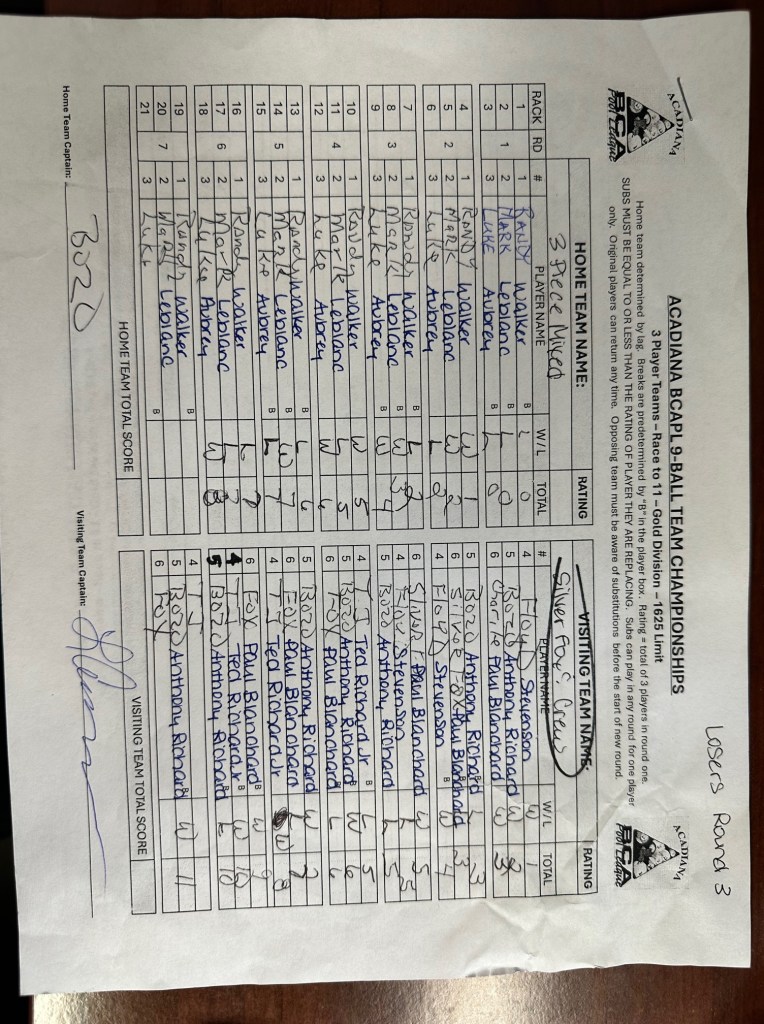 Losers Round 3
ACADIANA
BCA
Pool League
ACADIANA BCAPL 9-BALL TEAM CHAMPIONSHIPS
3 Player Teams – Race to 11 – Gold Division – 1625 Limit
ACADIANA
BCA
Pool League
Home team determined by lag. Breaks are predetermined by "B" in the player box. Rating = total of 3 players in round one.
SUBS MUST BE EQUAL TO OR LESS THAN THE RATING OF PLAYER THEY ARE REPLACING. Subs can play in any round for one player
only. Original players can return any time. Opposing team must be aware of substitutions before the start of new round.
HOME TEAM NAME: RATING VISITING TEAM NAME: RATING
3 Piece Mixed Silver Fox's Crew
RACK RD # PLAYER NAME W/L TOTAL # PLAYER NAME W/L TOTAL
1 1 RANDY Walker B L 0 4 Floyd Stevenson W 1
2 1 2 MARK Leblanc B L 0 5 Bozo Anthony Richard W 2
3 3 LUKE Aubrey B L 0 6 Charlie Paul Blanchard W 3
4 1 RANDY Walker W 1 5 Bozo Anthony Richard B L 3
5 2 2 MARK Leblanc W 2 6 Silver Fox Paul Blanchard B L 3
6 3 Luke Aubrey L 2 4 Floyd Stevenson B W 4
7 1 Randy Walker B L 2 6 Silver F Paul Blanchard W 5
8 3 2 Mark Leblanc B W 3 4 Floyd Stevenson L 5
9 3 Luke Aubrey B W 4 5 Bozo Anthony Richard L 5
10 1 Randy Walker W 5 4 TJ Ted Richard Jr B L 5
11 4 2 Mark Leblanc L 5 5 Bozo Anthony Richard B W 6
12 3 Luke Aubrey W 6 6 Fox Paul Blanchard B L 6
13 1 Randy Walker B L 6 5 Bozo Anthony Richard W 7
14 5 2 Mark Leblanc B W 7 6 Fox Paul Blanchard L 7
15 3 Luke Aubrey B L 7 4 TJ Ted Richard Jr W 8
16 1 Randy Walker L 7 6 Fox Paul Blanchard B W 9
17 6 2 Mark Leblanc L 7 4 TJ Ted Richard Jr B W 10
18 3 Luke Aubrey W 8 5 Bozo Anthony Richard B L 10
19 1 Randy Walker B 4 TJ
20 7 2 Mark Leblanc B 5 Bozo Anthony Richard W 11
21 3 Luke B 6 Fox
HOME TEAM TOTAL SCORE VISITING TEAM TOTAL SCORE
Home Team Captain: Bozo Visiting Team Captain: